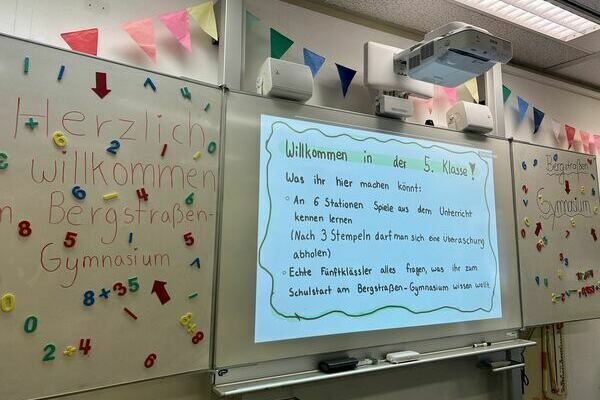 Herzlich
willkommen
Bergstraßen-
Gymnasium
8+35
2+4
Willkommen in der 5. Klasse!
Was ihr hier machen könnt:
An 6 Stationen Spiele aus dem Unterricht
kennen lernen
(Nach 3 Stempeln darf man sich eine Überraschung
abholen)
Echte Fünftklässler alles fragen, was ihr zum
Schulstart am Bergstraßen-Gymnasium wissen wollt.
Bergstraßen-
Gymnasium